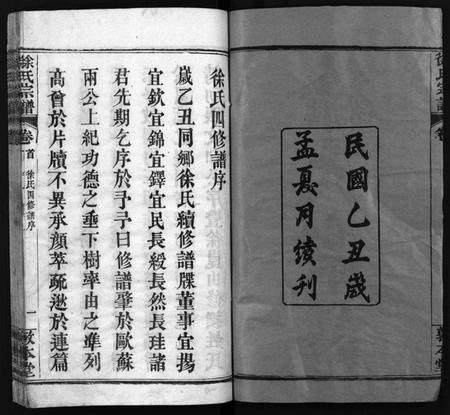 徐氏宗譜
卷
民國乙丑歲
孟夏月續刊
敦本堂
徐氏四修譜序
歲乙丑同鄉徐氏續修譜牒董事宜揚
宜欽宜錦宜鐸宜民長綬長然長珪諸
君先期乞序於予予曰修譜肇於歐蘇
兩公上紀功德之垂下樹率由之準列
高曾於片牘不異承顏萃疏逖於連篇
徐氏宗譜
卷首
徐氏四修譜序
一
敦本堂